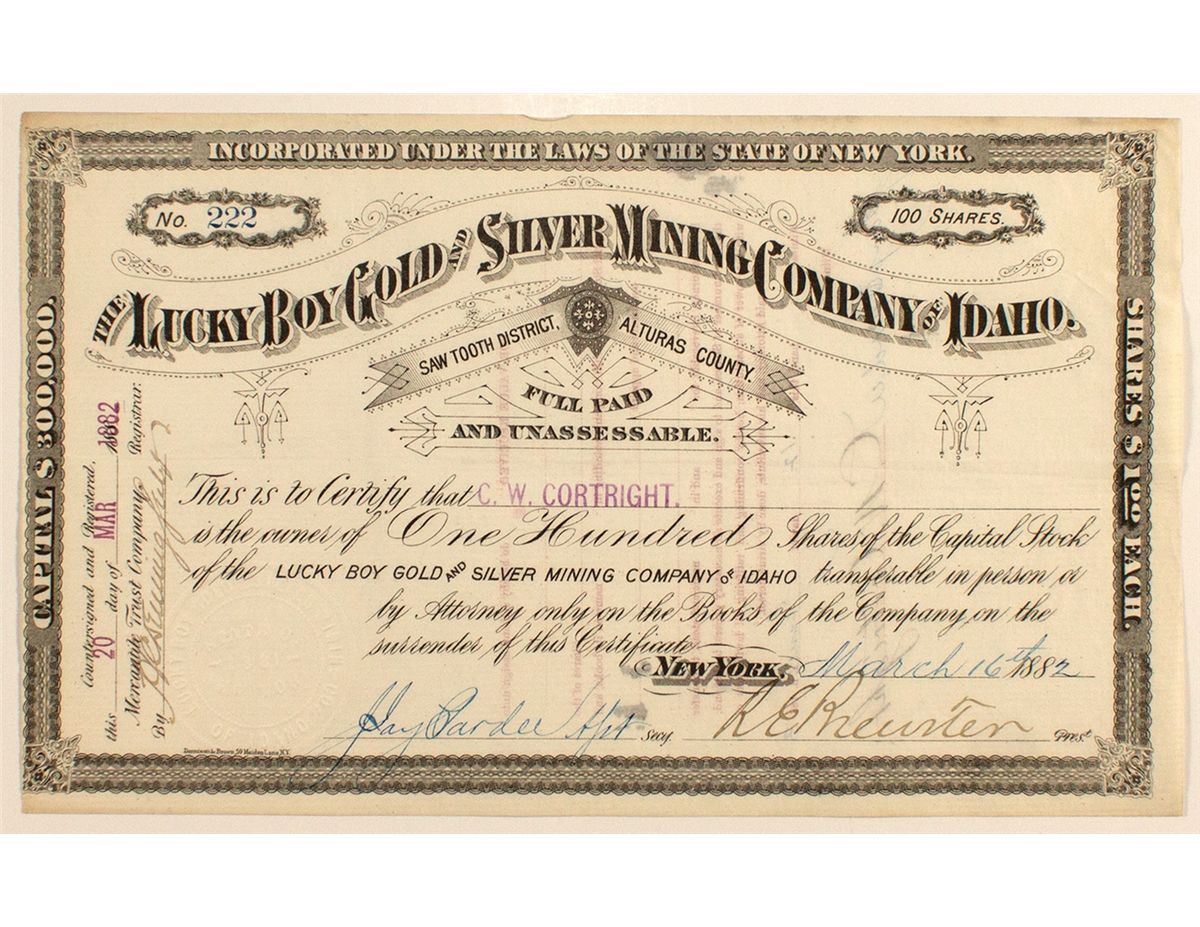 INCORPORATED UNDER THE LAWS OF THE STATE OF NEW YORK.
No. 222
100 SHARES.
THE LUCKY BOY GOLD AND SILVER MINING COMPANY OF IDAHO.
SAW TOOTH DISTRICT, ALTURAS COUNTY.
FULL PAID
AND UNASSESSABLE.
CAPITAL $300,000.
SHARES $1.00 EACH.
Countersigned and Registered,
this 20 day of MAR 1882
Mercantile Trust Company, Registrar.
By
This is to Certify that C. W. CORTRIGHT.
is the owner of One Hundred Shares of the Capital Stock
of the LUCKY BOY GOLD AND SILVER MINING COMPANY OF IDAHO transferable in person or
by Attorney only on the Books of the Company, on the
surrender of this Certificate.
NEW YORK, March 16th 1882
Jay Pardee Asst Secy.
R E Brewster Prest.
Brown, 59 Maiden Lane, N.Y.